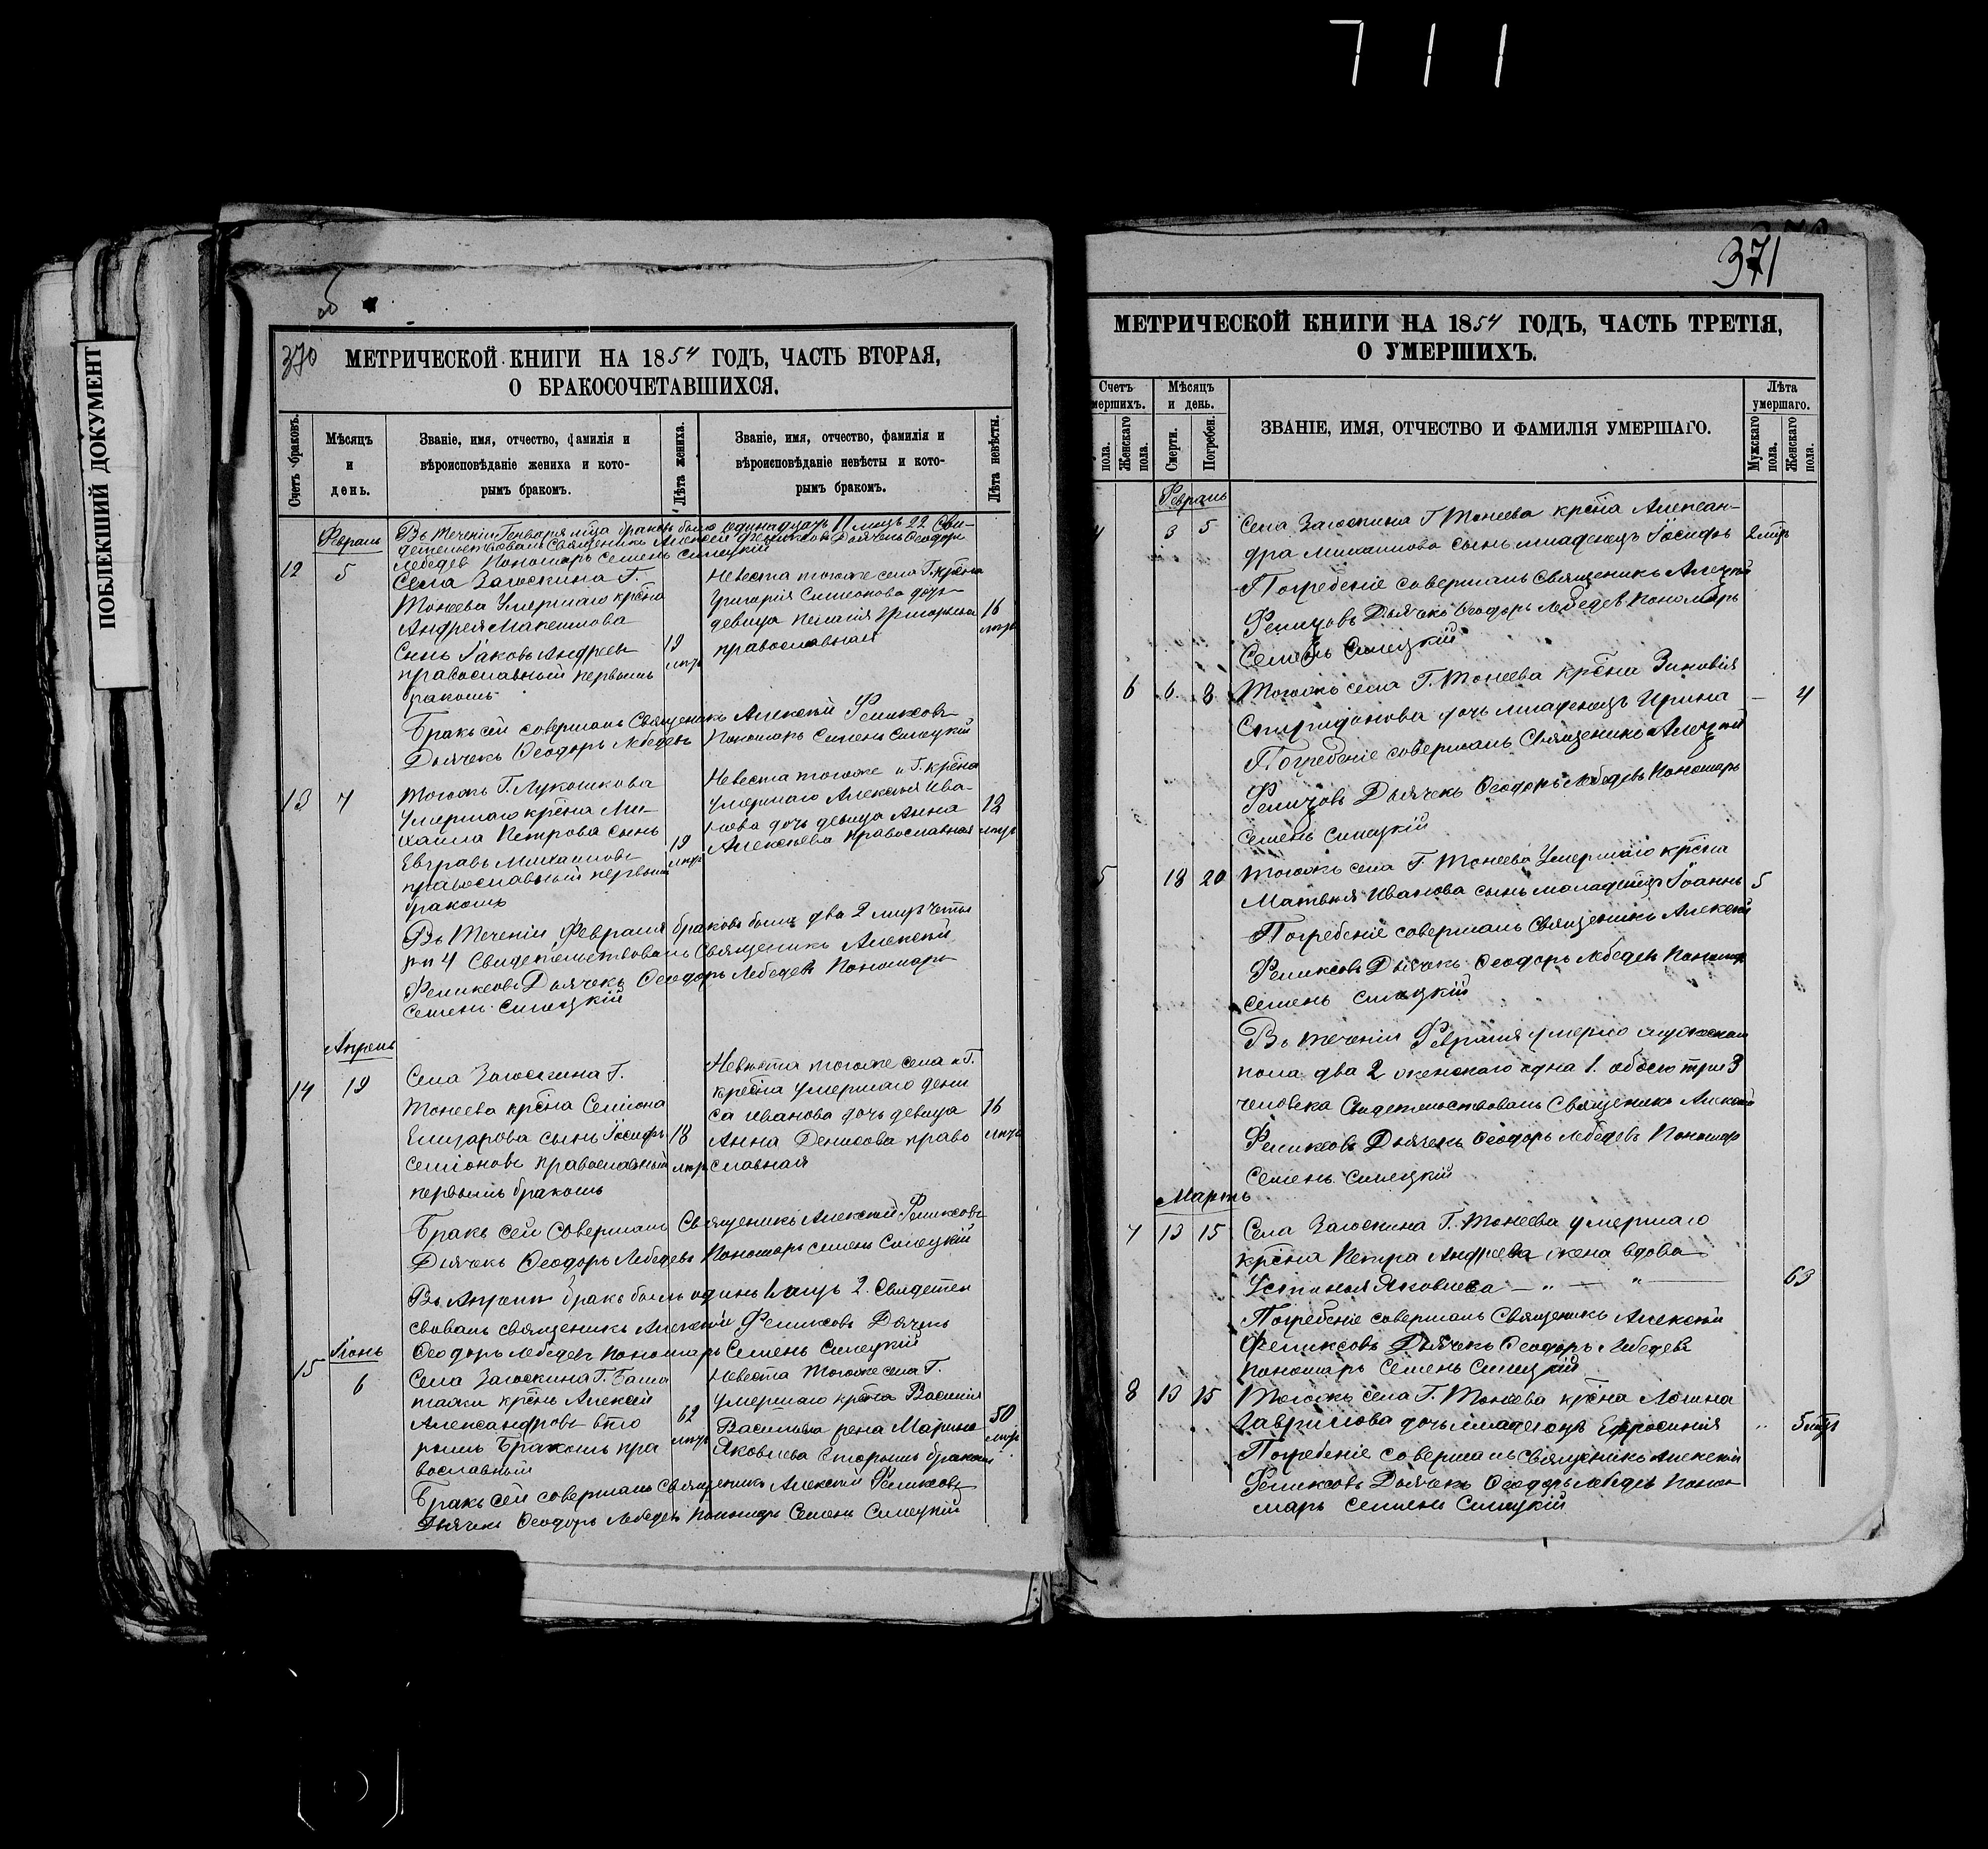 711
ПОБЛЕКШИЙ ДОКУМЕНТ
370
МЕТРИЧЕСКОЙ КНИГИ НА 1854 ГОДЪ, ЧАСТЬ ВТОРАЯ,
О БРАКОСОЧЕТАВШИХСЯ.
Счетъ браковъ.
Мѣсяцъ
и
день.
Званіе, имя, отчество, фамилія и
вѣроисповѣданіе жениха и кото-
рымъ бракомъ.
Лѣта жениха.
Званіе, имя, отчество, фамилія и
вѣроисповѣданіе невѣсты и кото-
рымъ бракомъ.
Лѣта невѣсты.
Февраль
Въ теченіи Генваря мца браковъ было одинадцать 11 лицъ 22 Сви-
детельствовалъ Священикъ Алексей Феликсовъ Дьячекъ Ѳеодоръ
Лебедев Пономарь Семенъ Силецкій
12 5
Села Загоскина Г.
Тонеева Умершаго крѣна
Андрея
Сынъ Іаковъ Андреевъ
православный первымъ
бракомъ
19
лѣтъ
Невеста тогоже села Г. крѣна
Григорія Симеонова дочь
девица Пелагія Григорьева
православная
16
лѣтъ
Бракъ сей совершалъ Священикъ Алексей Феликсовъ
Дьячекъ Ѳеодоръ Лебедевъ Пономарь Семенъ Силецкій
13 7
Тогожъ Г. Лукошкова
Умершаго крѣна Ми-
хаила Петрова сынъ
Евграѳъ Михаиловъ
православный первымъ
бракомъ
19
лѣтъ
Невеста тогоже и Г. крѣна
умершаго Алексея Ива-
нова дочь девица Анна
Алексеева православная
Въ Теченіи Февраля браковъ было два 2 лицъ четы
ри 4 Свидетельствовалъ Священикъ Алексей
Феликсовъ Дьячекъ Ѳеодоръ Лебедевъ Пономарь
Семенъ Силецкій
Апрель
14 19
Села Загоскина Г.
Тонеева крѣна Семіона
Елизарова сынъ Іосифъ
Семіоновъ православный
первымъ бракомъ
18
лѣтъ
Невѣста тогоже села и Г.
крѣна умершаго Дени
са Иванова дочь девица
Анна Денисова право
славная
16
лѣтъ
Бракъ сей Совершалъ Священикъ Алексей Феликсовъ
Дьячекъ Ѳеодоръ Лебедевъ Пономарь Семенъ Силецкій
Въ Апрели бракъ былъ одинъ 1 лицъ 2. Свидетел
ствовалъ священикъ Алексей Феликсовъ Дьячекъ
Ѳеодоръ Лебедевъ Пономарь Семенъ Силецкій
Іюнь
15 6
Села Загоскина Г. Баша
крѣнъ Алексей
Александровъ вто
рымъ Бракомъ пра
вославный
62
лѣтъ
Невеста Тогоже села Г.
умершаго крѣна Василія
Васильева жена Марина
Яковлева Вторымъ бракомъ
50
лѣтъ
Бракъ сей совершалъ Священикъ Алексей Феликсовъ
Дьячекъ Ѳеодоръ Лебедев Пономарь Семенъ Силецкій
371
МЕТРИЧЕСКОЙ КНИГИ НА 1854 ГОДЪ, ЧАСТЬ ТРЕТІЯ,
О УМЕРШИХЪ.
Счетъ
мершихъ.
пола.
Женскаго
пола.
Мѣсяцъ
и день.
Смерти.
Погребен.
ЗВАНІЕ, ИМЯ, ОТЧЕСТВО И ФАМИЛІЯ УМЕРШАГО.
Лѣта
умершаго.
Мужскаго
пола.
Женскаго
пола.
Февраль
4 3 5
Села Загоскина Г Тонеева крѣна Алексан-
дра Михаилова сынъ младенецъ Іосифъ
Погребеніе совершалъ Священикъ Алексей
Феликсовъ Дьячекъ Ѳеодоръ Лебедев Пономарь
Семенъ Силецкій
6 6 8
Тогожъ села Г. Тонеева крѣна Зиновія
Спиридонова дочь младенецъ Ирина
— 4
Погребеніе совершалъ Священикъ Алексей
Феликсовъ Дьячекъ Ѳеодоръ Лебедевъ Пономарь
Семенъ Силецкій
5 18 20
Тогожъ села Г. Тонеева Умершаго крѣна
Матвея Иванова сынъ младенецъ Іоаннъ
5
Погребеніе совершалъ Священикъ Алексей
Феликсовъ Дьячекъ Ѳеодоръ Лебедев Пономарь
Семенъ Силецкій
Въ теченіи Февраля умерло мужескаго
пола два 2 женскаго одна 1. обоего три 3
человека Свидетельствовалъ Священикъ Алексей
Феликсовъ Дьячекъ Ѳеодоръ Лебедевъ Пономарь
Семенъ Силецкій
Мартъ
7 13 15
Села Загоскина Г. Тонеева умершаго
крѣна Петра Андреева жена вдова
Устинья Яковлева
63
Погребеніе совершалъ Священикъ Алексей
Феликсовъ Дьячекъ Ѳеодоръ Лебедевъ
Пономарь Семенъ Силецкій
8 13 15
Тогожъ села Г. Тонеева крѣна Логина
Гаврилова дочь младенецъ Ефросинія
Погребеніе совершалъ Священикъ Алексей
Феликсовъ Дьячекъ Ѳеодоръ Лебедев Поно-
марь Семенъ Силецкій